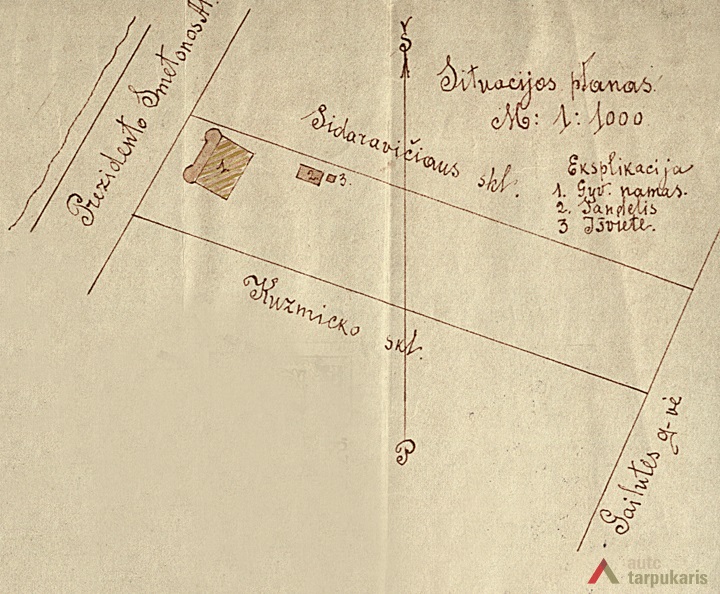 Prezidento Smetonos Al.
Š
Situacijos planas.
M: 1:1000
Sidaravičiaus skl.
Eksplikacija
1. Gyv. namas.
2. Sandelis
3 Išvietė.
1
2
3.
Kuzmicko skl.
P
Gailutės g-vė
autc
tarpukaris